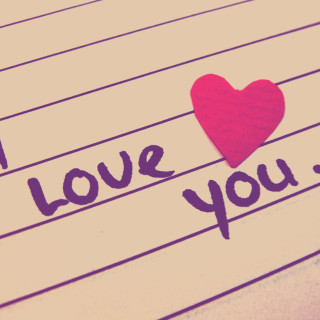 I Love
you.